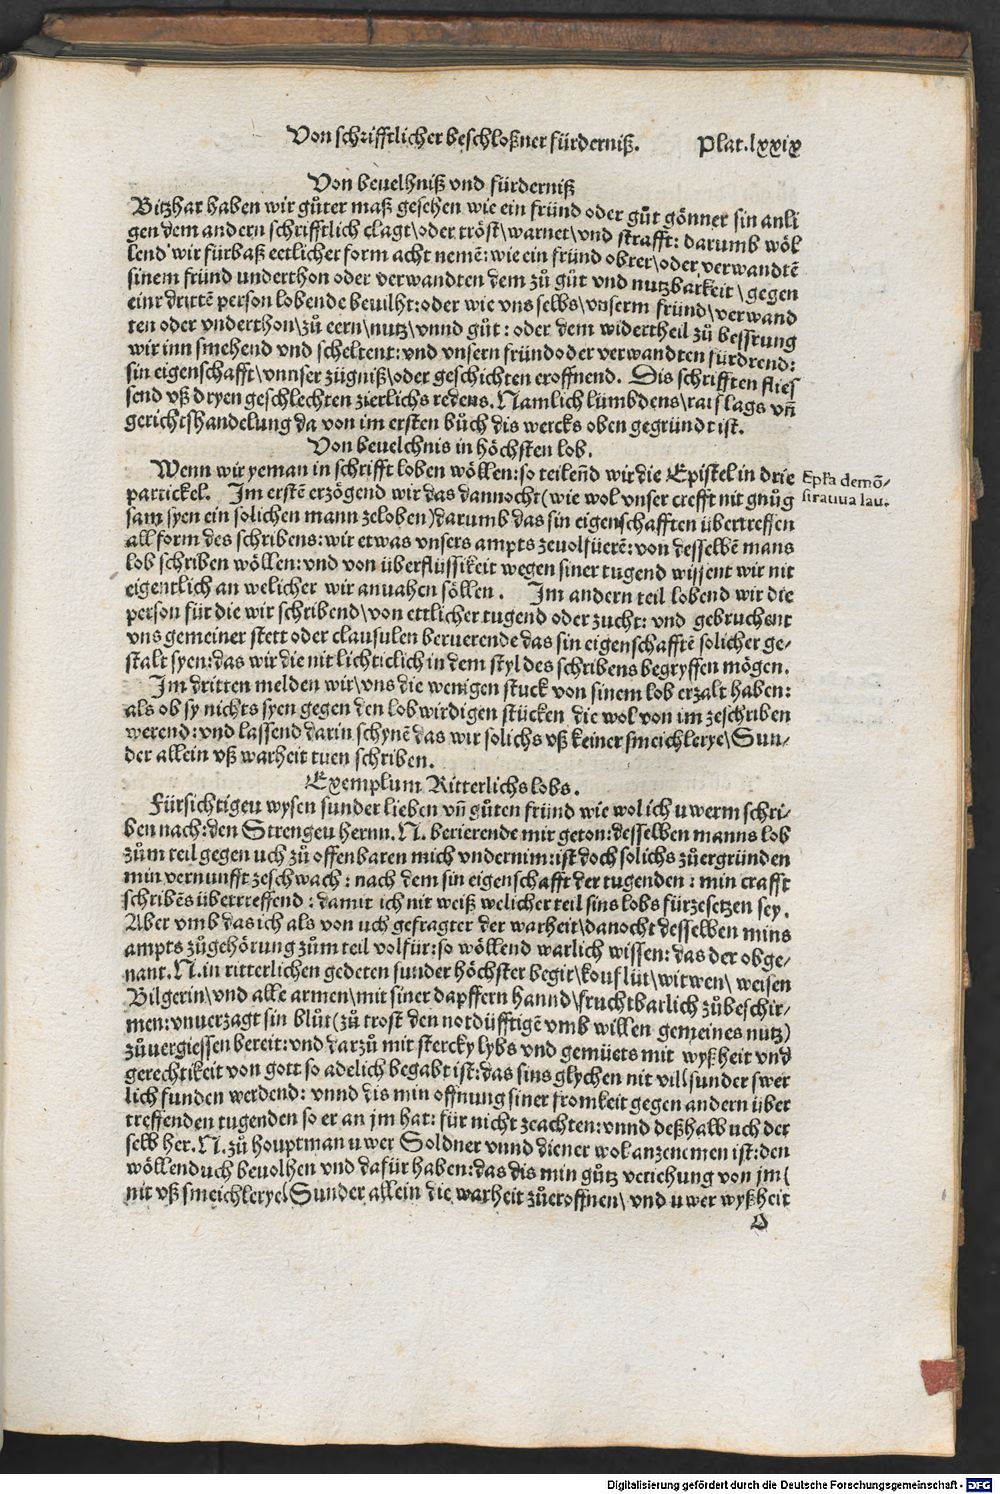 Von schrifftlicher beschloßner fürderniß. Plat. lxxix
Von beuelhniß vnd fürderniß
Bitzhar haben wir gůter maß gesehen wie ein fründ oder gůt gönner sin anli
gen dem andern schrifftlich clagt\oder tröst\warnet\vnd strafft: darumb wöl
lend wir fürbaß eetlicher form acht nemē: wie ein fründ obrer\oder verwandtē
sinem fründ underthon oder verwandten dem zů gůt vnd nutzbarkeit\gegen
einr drittē person lobende beuilht: oder wie vns selbs\vnserm fründ\verwand
ten oder vnderthon\zů eern\nutz\vnnd gůt: oder dem widertheil zů bessrung
wir inn smehend vnd scheltent: vnd vnsern fründ oder verwandten fürdrend:
sin eigenschafft\vnnser zügniß\oder geschichten eroffnend. Dis schrifften flies
send vß dryen geschlechten zierlichs redens. Namlich lümbdens\ratslags vn̄
gerichtshandelung da von im ersten bůch dis wercks oben gegründt ist.
Von beuelchnis in höchsten lob.
Wenn wir yeman in schrifft loben wöllen: so teilen̄d wir die Epistel in drie
partickel. Im erstē erzögend wir das dannocht (wie wol vnser crefft nit gnůg
sam syen ein solichen mann zeloben) darumb das sin eigenschafften übertreffen
all form des schribens: wir etwas vnsers ampts zeuolfüerē: von desselbē mans
lob schriben wöllen: vnd von überflüssikeit wegen siner tugend wissent wir nit
eigentlich an welicher wir anuahen söllen. Im andern teil lobend wir die
person für die wir schribend\von ettlicher tugend oder zucht: vnd gebruchent
vns gemeiner stett oder clausulen beruerende das sin eigenschafftē solicher ge-
stalt syen: das wir die nit lichticlich in dem styl des schribens begryffen mögen.
Im dritten melden wir\vns die wenigen stuck von sinem lob erzalt haben:
als ob sy nichts syen gegen den lobwirdigen stücken die wol von im zeschriben
werend: vnd lassend darin schynē das wir solichs vß keiner smeichlerye\Sun-
der allein vß warheit tuen schriben.
Epl'a demō-
stratiua lau.
Exemplum Ritterlichs lobs.
Fürsichtigen wysen sunder lieben vn̄ gůten fründ wie wol ich uwerm schri-
ben nach: den Strengen hernn. N. berierende mir geton: desselben manns lob
zům teil gegen uch zů offenbaren mich vndernim: ist doch solichs zůergründen
min vernunfft zeschwach: nach dem sin eigenschafft der tugenden: min crafft
schribēs übertreffend: damit ich nit weiß welicher teil sins lobs fürzesetzen sey.
Aber vmb das ich als von uch gefragter der warheit\danocht desselben mins
ampts zůgehörung zům teil volfür: so wöllend warlich wissen: das der obge-
nant. N. in ritterlichen gedeten sunder höchster begir\kouflüt\witwen\weisen
Bilgerin\vnd alle armen\mit siner dapffern hannd\fruchtbarlich zůbeschir-
men: vnuerzagt sin blůt (zů trost den notdüfftigē vmb willen gemeines nutz)
zůuergiessen bereit: vnd darzů mit stercky lybs vnd gemüets mit wyßheit vnd
gerechtikeit von gott so adelich begabt ist: das sins glychen nit vil\sunder swer
lich funden werdend: vnnd dis min offnung siner fromkeit gegen andern über
treffenden tugenden so er an jm hat: für nicht zeachten: vnnd deßhalb uch der
selb her. N. zů houptman uwer Soldner vnnd diener wol anzenemen ist: den
wöllend uch beuolhen vnd dafür haben: das dis min gůtz verichung von jm\
nit vß smeichlerye\Sunder allein die warheit zůeroffnen\vnd uwer wyßheit
O
Digitalisierung gefördert durch die Deutsche Forschungsgemeinschaft - DFG